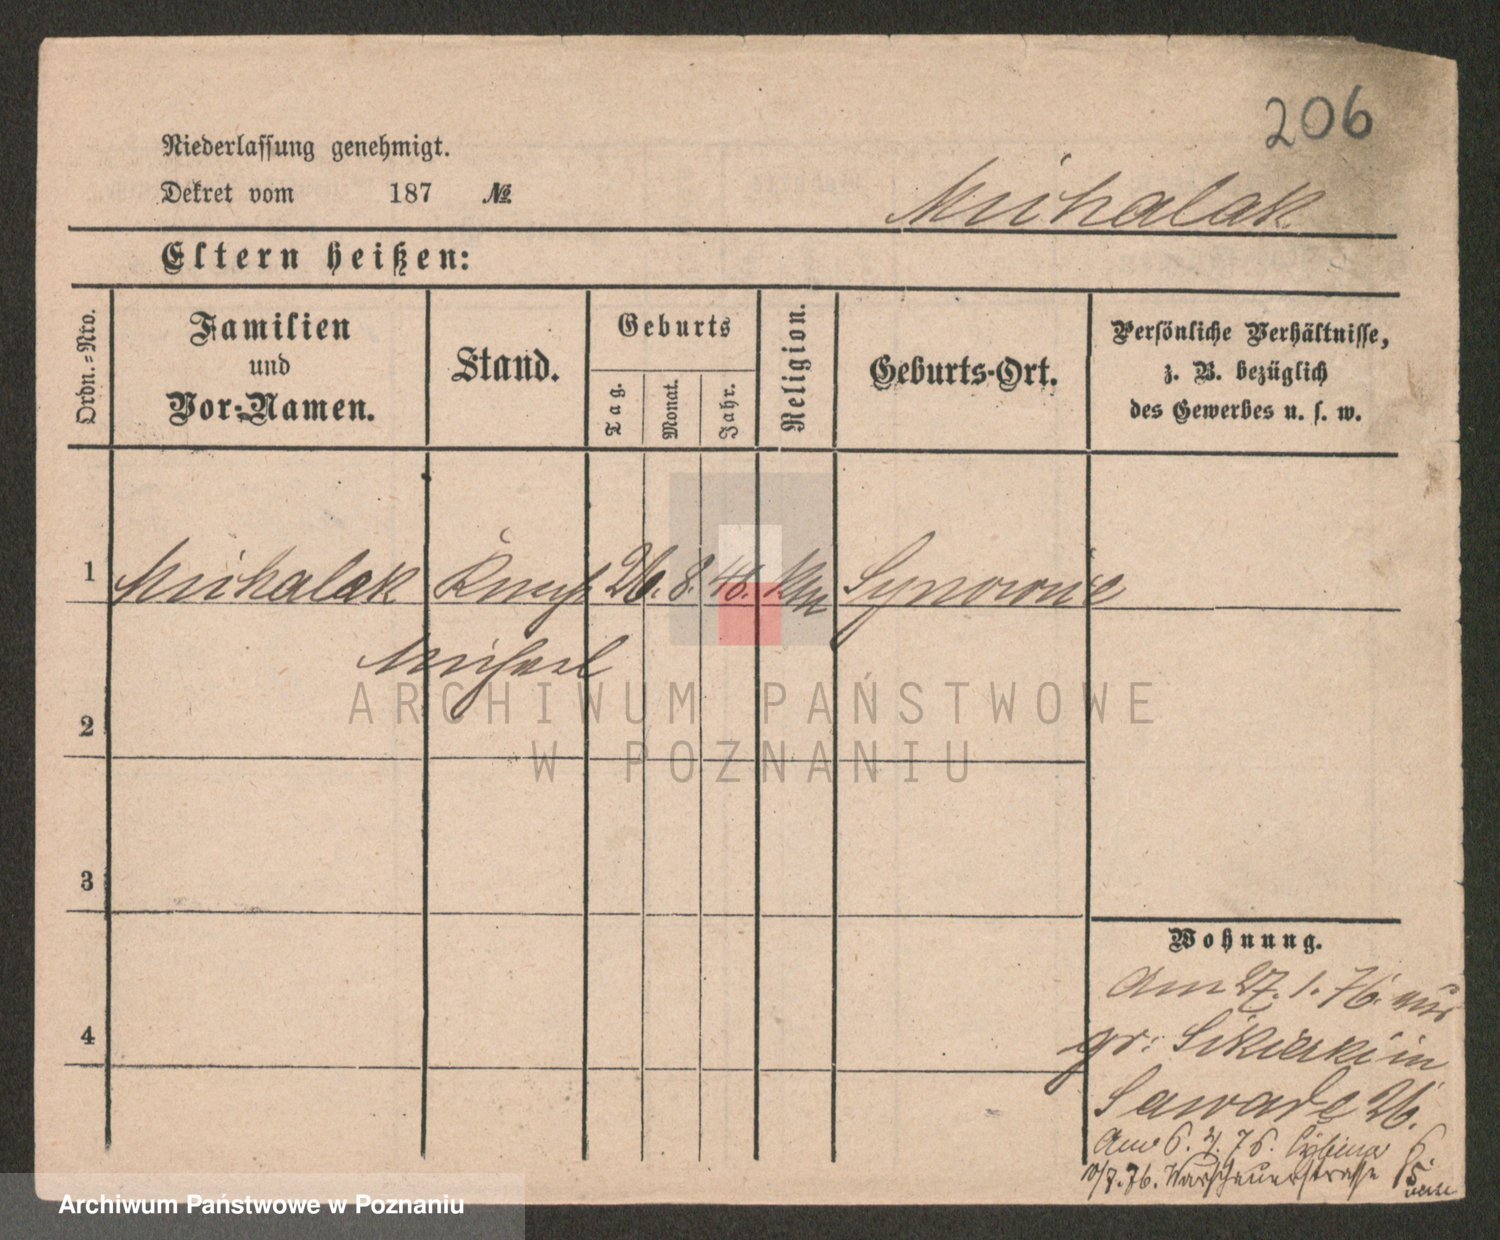 206
Niederlassung genehmigt.
Dekret vom 187 №
Michalak
Eltern heißen:
Ordn.=Nro.
Familien
und
Vor=Namen.
Stand.
Geburts
Tag.
Monat.
Jahr.
Religion.
Geburts-Ort.
Persönliche Verhältnisse,
z. B. bezüglich
des Gewerbes u. s. w.
1 Michalak Knecht 26. 8. 48. Kth
Michael
2
3
4
Wohnung.
Am 27. 1. 76. aus
gr: Sikierki in
Zawade 26.
Am 6. 4. 76. Cybina 6.
10/7. 76. Warschauerstrasse 15
ARCHIWUM PAŃSTWOWE
W POZNANIU
Archiwum Państwowe w Poznaniu